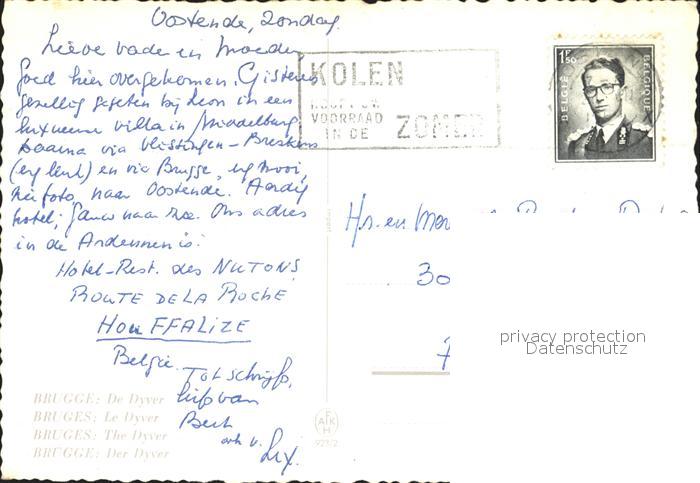 Oostende, Zondag.
Lieve vader en Moeder,
Goed hier overgekomen. Gisteren
gezellig gegeten bij Leon in een
luxueuse villa in Middelburg,
daarna via Vlissingen-Breskens
(erg leuk) en via Brugge, erg mooi,
zie foto, naar Oostende. Aardig
hotel; naar zee. Ons adres
in de Ardennen is:
Hotel-Rest. des NUTONS
ROUTE DE LA ROCHE
HOUFFALIZE
België.
Tot schrijfs,
liefs van
Bert
ook v.
KOLEN
HOUDT UW
VOORRAAD
IN DE ZOMER
1F50
BELGIË
BELGIQUE
Hr. en Mev
30
7
privacy protection
Datenschutz
BRUGGE: De Dyver
BRUGES: Le Dyver
BRUGES: The Dyver
BRÜGGE: Der Dyver